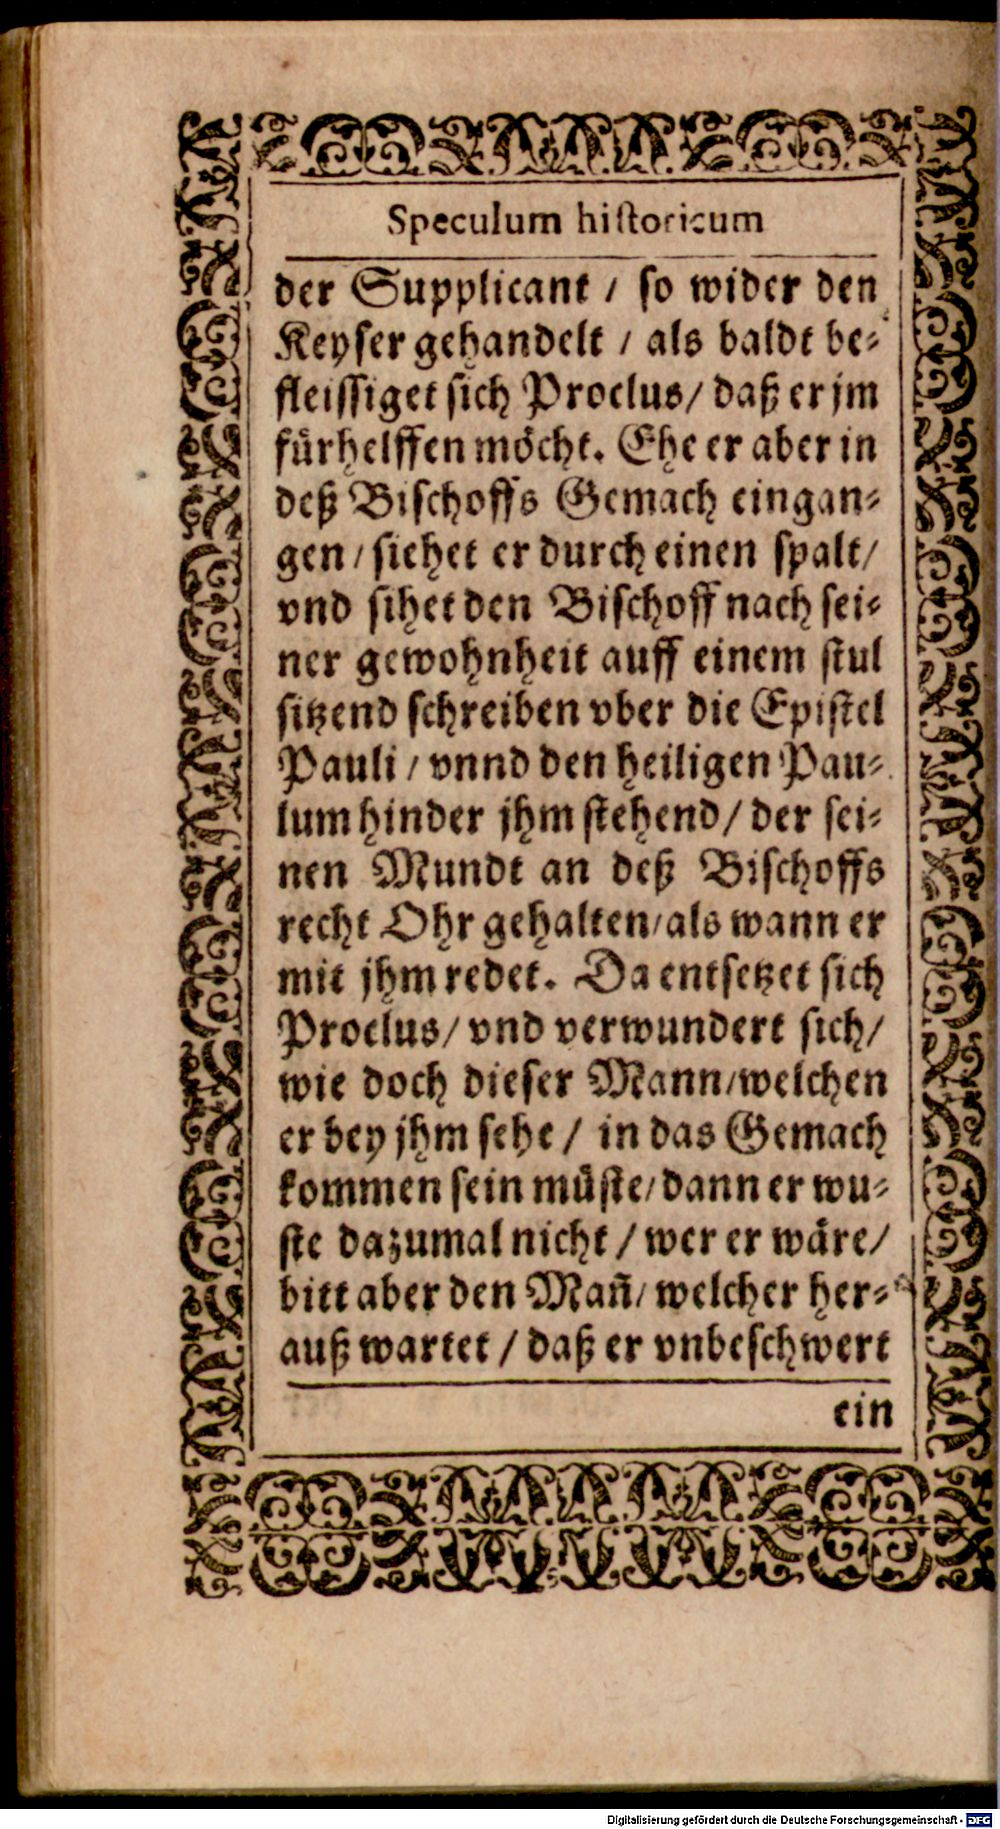 Speculum historicum
der Supplicant / so wider den
Keyser gehandelt / als baldt be-
fleissiget sich Proclus / daß er jm
fürhelffen möcht. Ehe er aber in
deß Bischoffs Gemach eingan-
gen / siehet er durch einen spalt /
vnd sihet den Bischoff nach sei-
ner gewohnheit auff einem stul
sitzend schreiben vber die Epistel
Pauli / vnnd den heiligen Pau-
lum hinder jhm stehend / der sei-
nen Mundt an deß Bischoffs
recht Ohr gehalten / als wann er
mit jhm redet. Da entsetzet sich
Proclus / vnd verwundert sich /
wie doch dieser Mann / welchen
er bey jhm sehe / in das Gemach
kommen sein müste / dann er wu-
ste dazumal nicht / wer er wäre /
bitt aber den Mañ / welcher her-
auß wartet / daß er vnbeschwert
ein
Digitalisierung gefördert durch die Deutsche Forschungsgemeinschaft - DFG